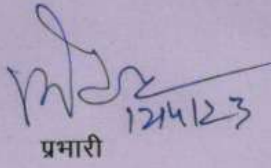 12/4/23
प्रभारी